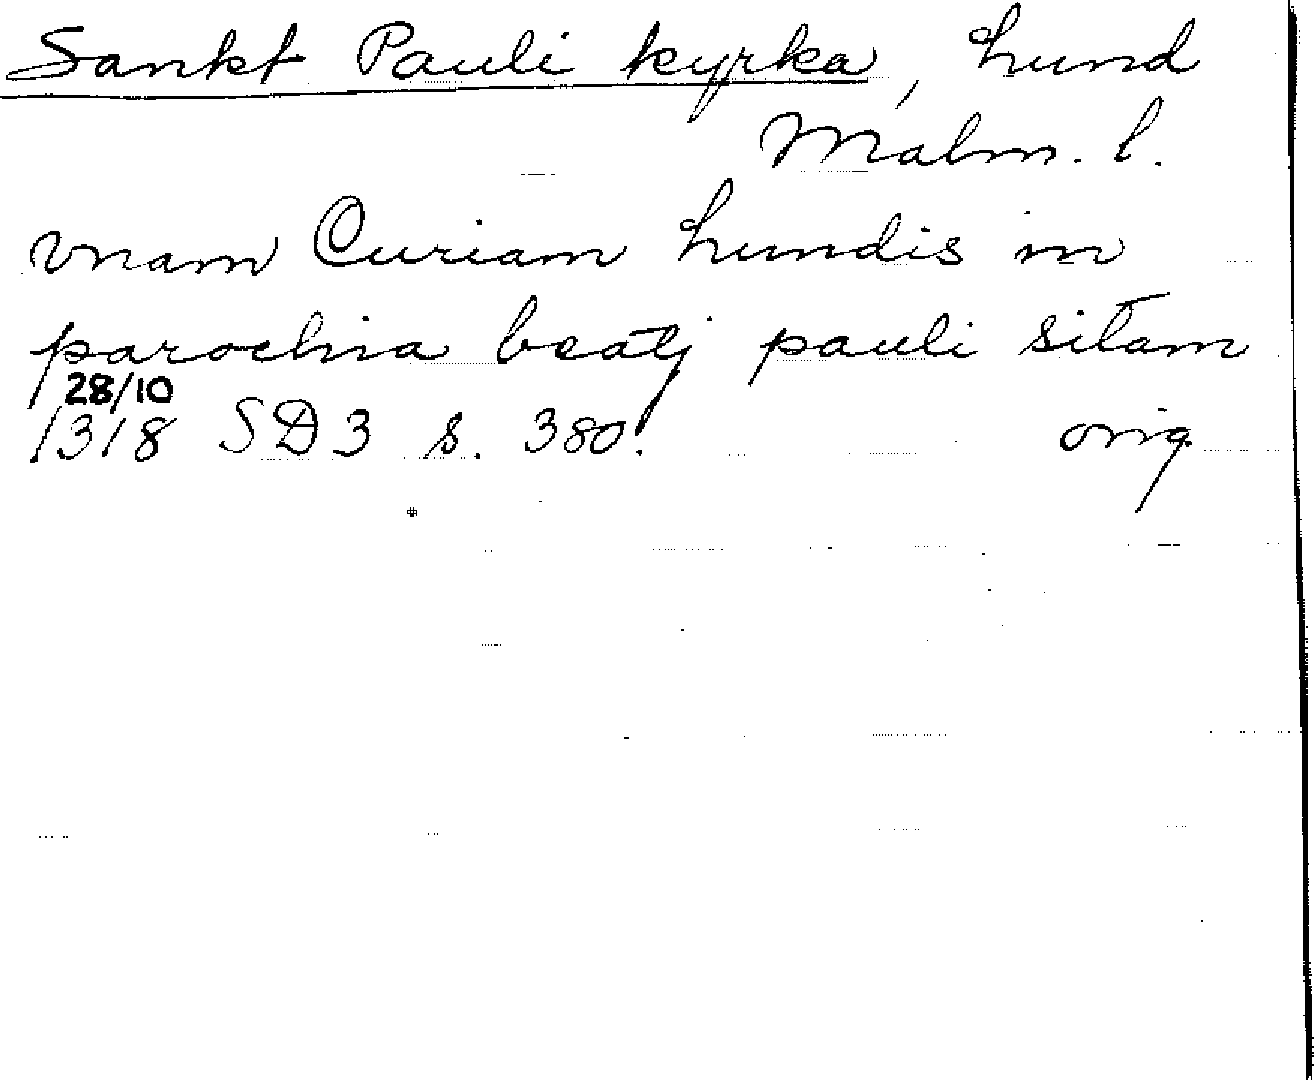 Sankt Pauli kyrka, Lund
Malm. l.
vnam Curiam Lundis in
parochia beatj pauli sitam
28/10
1318 SD3 s. 380. orig